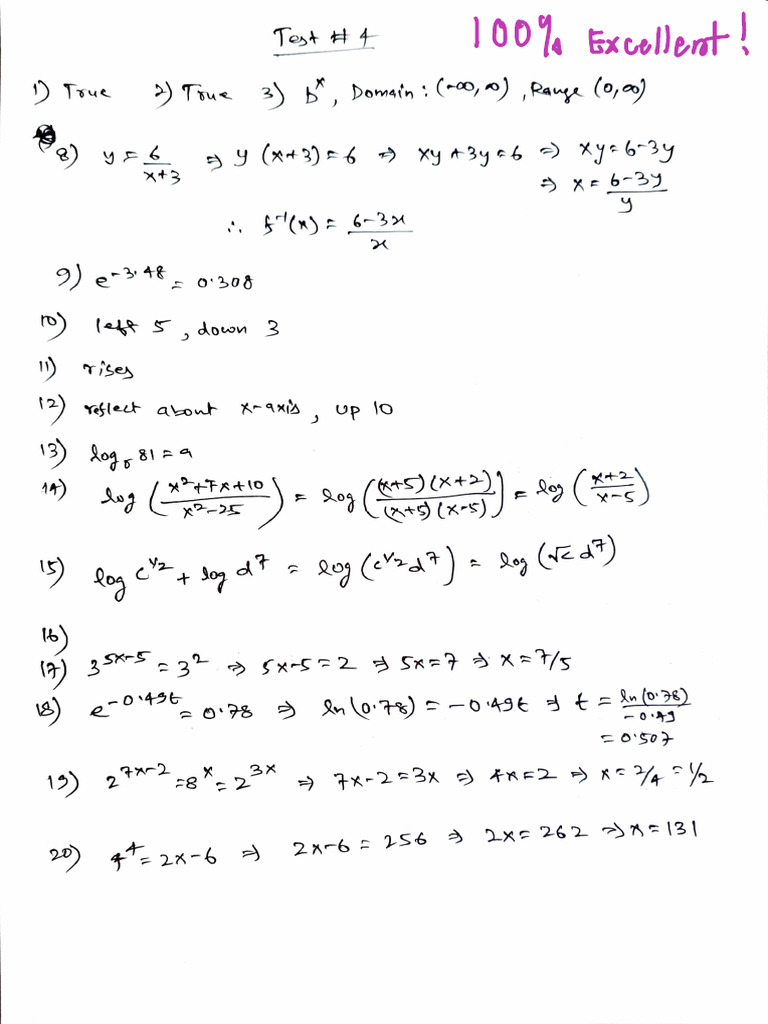 Test # 4
100% Excellent!
1) True 2) True 3) b^x, Domain: (-∞, ∞), Range (0, ∞)
8) y = 6/(x+3) ⇒ y (x+3) = 6 ⇒ xy + 3y = 6 ⇒ xy = 6-3y
⇒ x = (6-3y)/y
∴ f^-1(x) = (6-3x)/x
9) e^-3.48 = 0.308
10) left 5, down 3
11) rises
12) reflect about x-axis, up 10
13) log 81 = a
14) log ((x^2+7x+10)/(x^2-25)) = log (((x+5)(x+2))/((x+5)(x-5))) = log ((x+2)/(x-5))
15) log c^1/2 + log d^7 = log (c^1/2 d^7) = log (√c d^7)
16)
17) 3^5x-5 = 3^2 ⇒ 5x-5 = 2 ⇒ 5x = 7 ⇒ x = 7/5
18) e^-0.49t = 0.78 ⇒ ln (0.78) = -0.49t ⇒ t = ln (0.78)/-0.49
= 0.507
19) 2^7x-2 = 8^x = 2^3x ⇒ 7x-2 = 3x ⇒ 4x = 2 ⇒ x = 2/4 = 1/2
20) 4^4 = 2x-6 ⇒ 2x-6 = 256 ⇒ 2x = 262 ⇒ x = 131